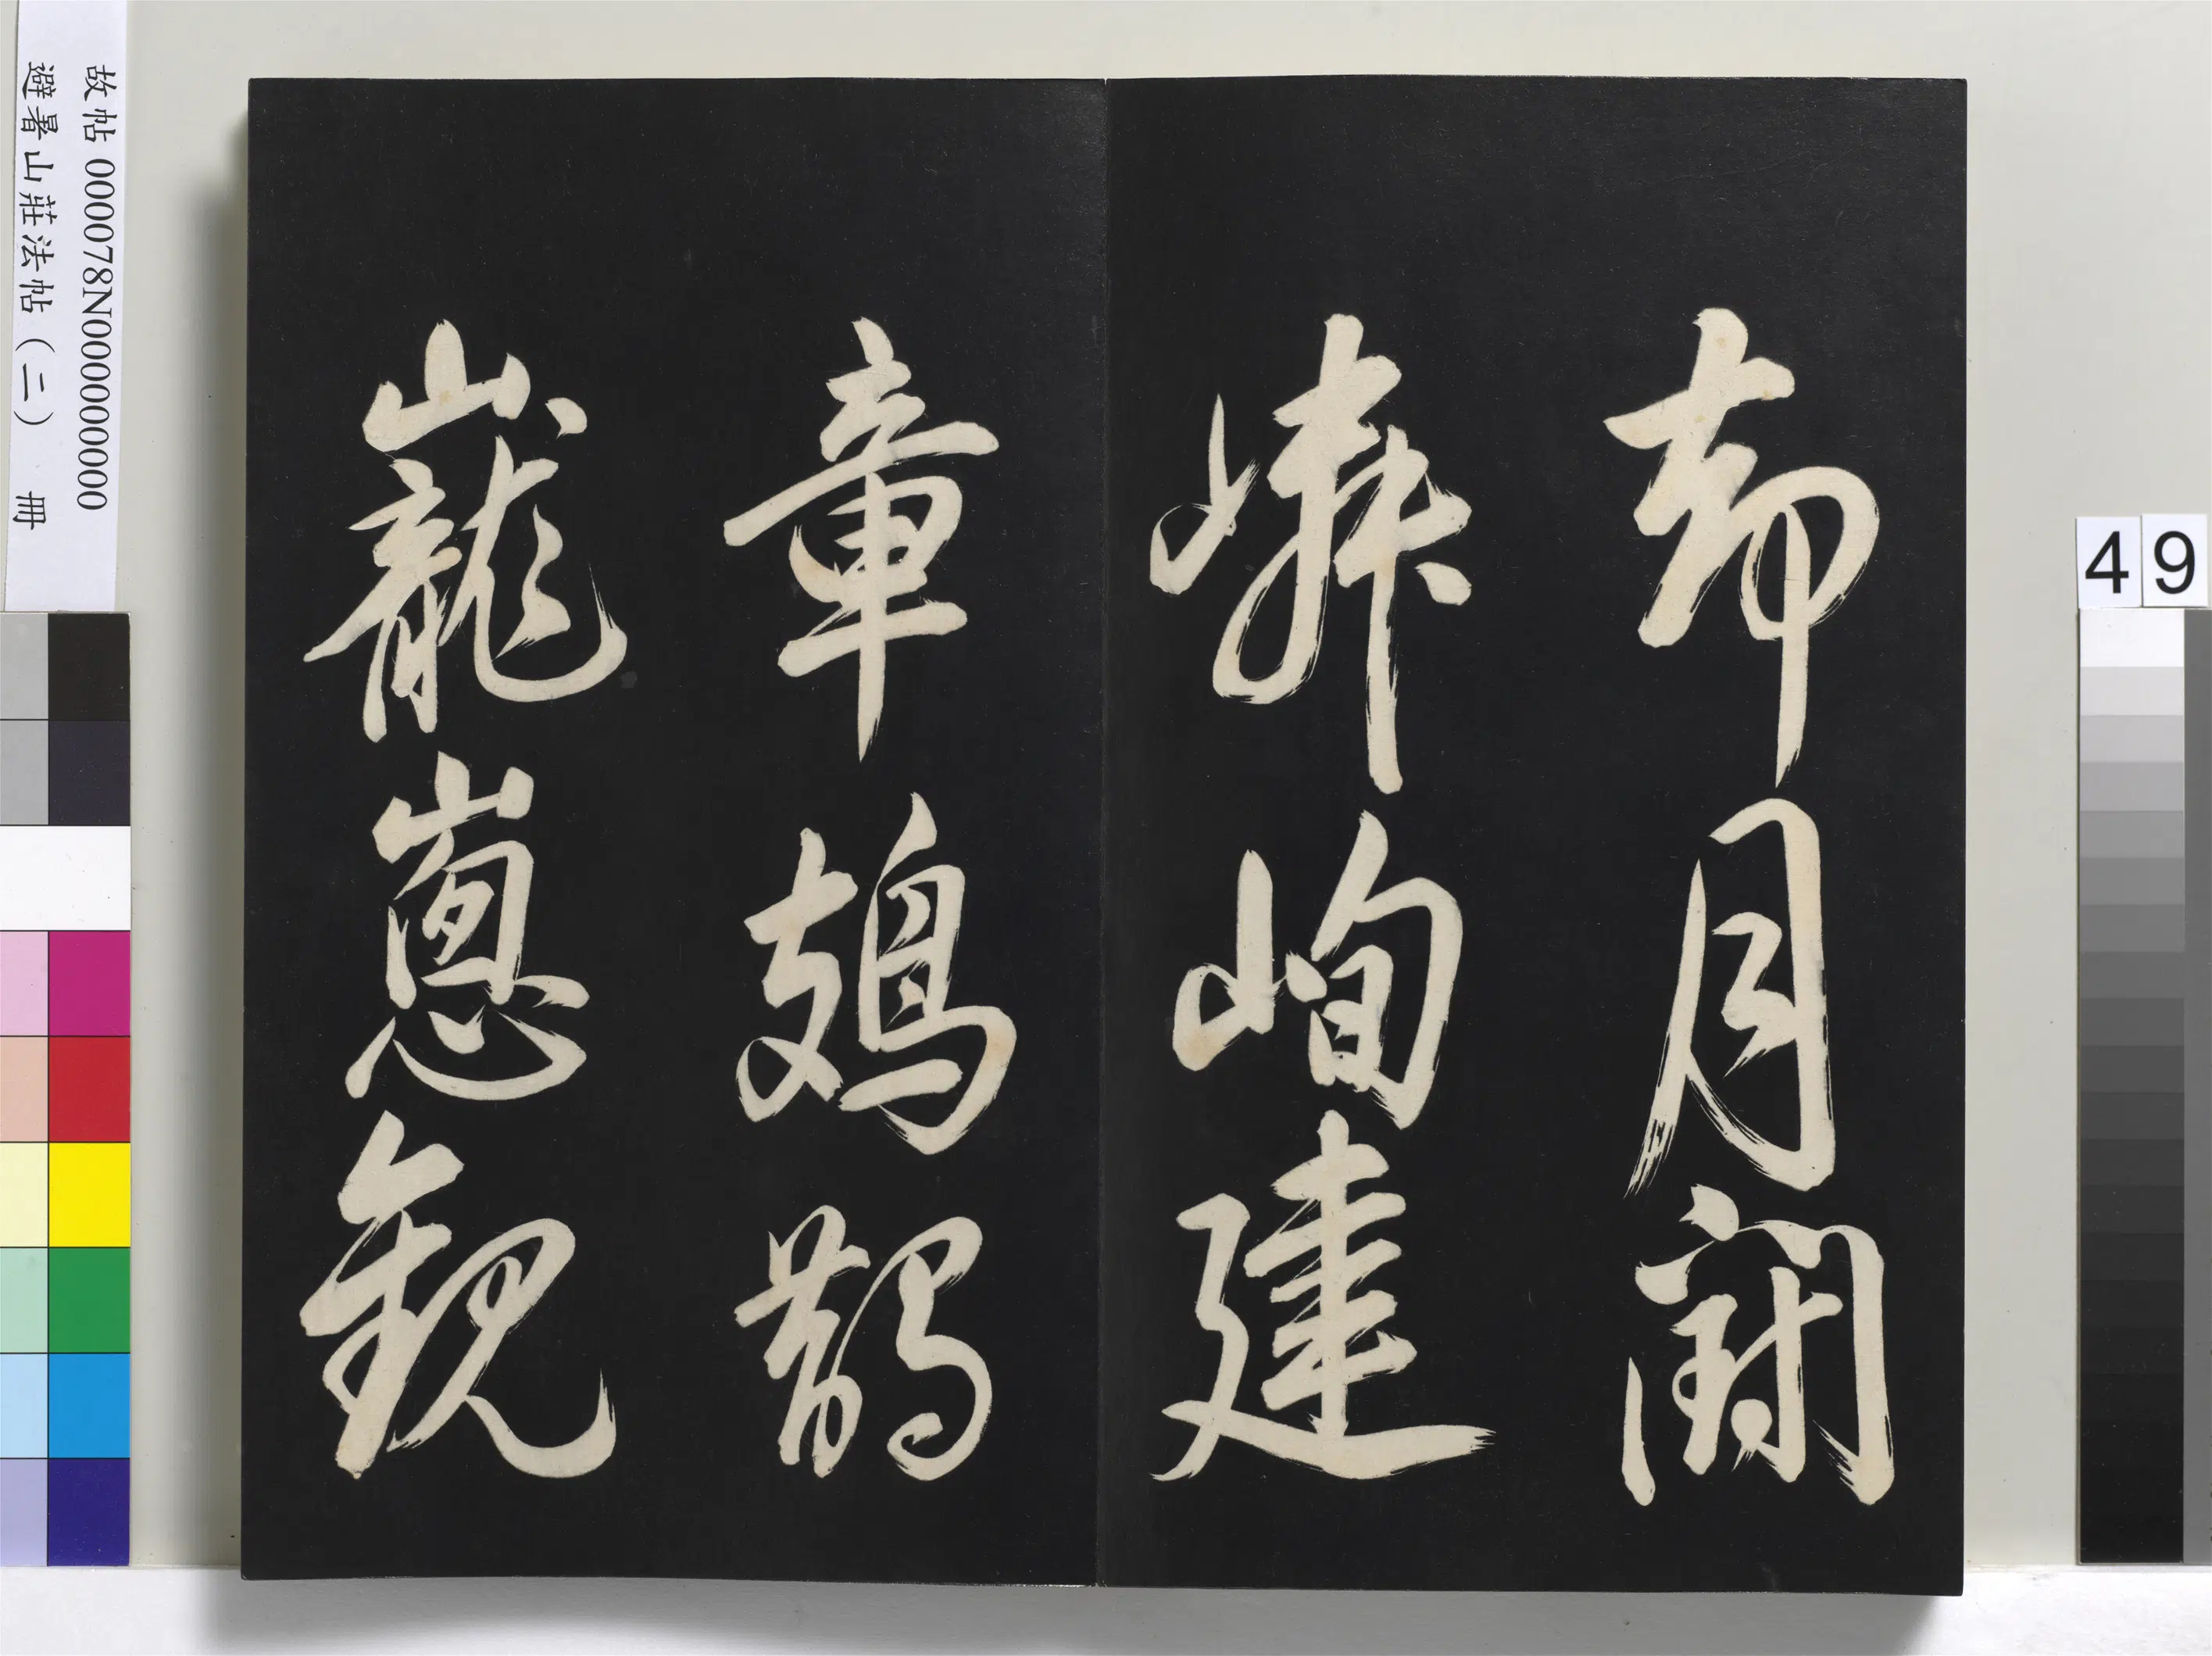 却月開
嶙峋建
章鳷鵲
巃嵸觀
故帖 000078N000000000
避暑山莊法帖（二） 冊
49